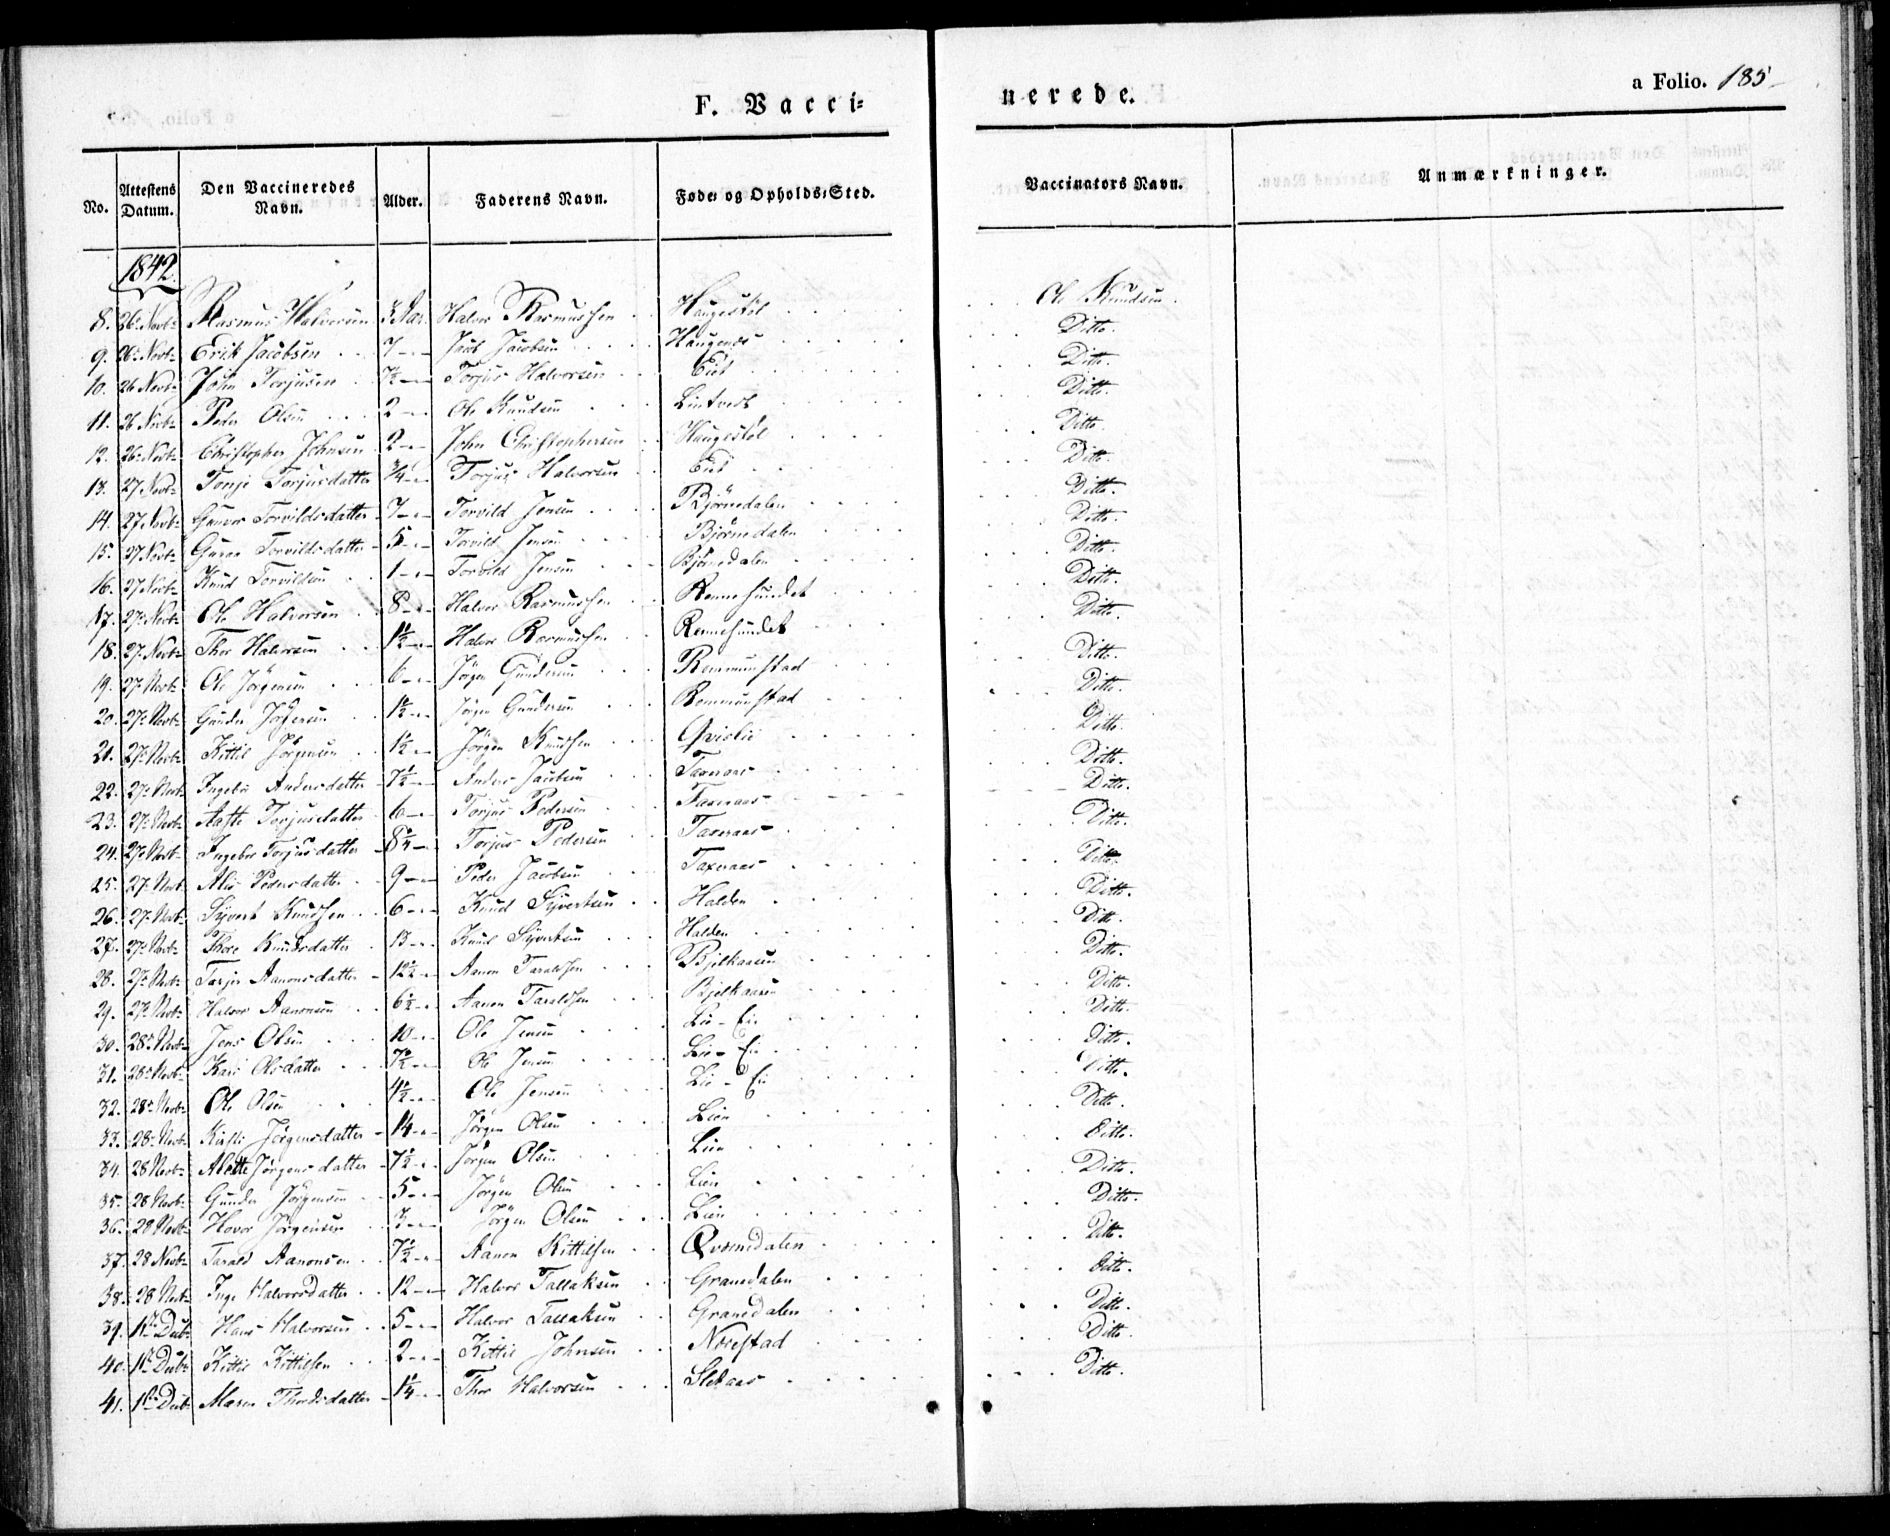 F. Vacci=
nerede.
a Folio. 185
No. Attestens Datum. Den Vaccineredes Navn. Alder. Faderens Navn. Føde- og Opholds-Sted. Vaccinators Navn. Anmærkninger.
1842
8. 26 Novb: Rasmus Halvorsen 3 Aar Halvor Rasmussen Haugestøl Ole Knudsen
9. 26 Novb: Erik Jacobsen 7 Jacob Jacobsen Haugenes Ditto.
10. 26 Novb: John Torjusen ½ Torjus Halvorsen Eiet Ditto.
11. 26 Novb: Peder Olsen 2 Ole Knudsen Lintvedt Ditto.
12. 26 Novb: Christopher Johnsen 2 John Christophersen Haugestøl Ditto.
13. 27 Novb: Tonje Torjusdatter ¾ Torjus Halvorsen Eiet Ditto.
14. 27 Novb: Gunvor Torvildsdatter 7 Torvild Jensen Bjørnedalen Ditto.
15. 27 Novb: Guroe Torvildsdatter 5 Torvild Jensen Bjørnedalen Ditto.
16. 27 Novb: Knud Torvildsen 1 Torvild Jensen Bjørnedalen Ditto.
17. 27 Novb: Ole Halvorsen 8 Halvor Rasmussen Rennesundet Ditto.
18. 27 Novb: Thor Halvorsen 1½ Halvor Rasmussen Rennesundet Ditto.
19. 27 Novb: Ole Jörgensen 6 Jörgen Gundersen Rommunstad Ditto.
20. 27 Novb: Gunder Jörgensen 1½ Jörgen Gundersen Rommunstad Ditto.
21. 27 Novb: Kittil Jörgensen 1½ Jörgen Knudsen Qvislie Ditto.
22. 27 Novb: Ingebor Andersdatter 7½ Anders Jacobsen Taxeraas Ditto.
23. 27 Novb: Aaste Torjusdatter 6 Torjus Pedersen Taxeraas Ditto.
24. 27 Novb: Ingebor Torjusdatter 8½ Torjus Pedersen Taxeraas Ditto.
25. 27 Novb: Alis Pedersdatter 9 Peder Jacobsen Taxeraas Ditto.
26. 27 Novb: Syvert Knudsen 6 Knud Syvertsen Halden Ditto.
27. 27 Novb: Thore Knudsdatter 13 Knud Syvertsen Halden Ditto.
28. 27 Novb: Tarjer Aanonsdatter 12½ Aanon Taraldsen Bjelkaasen Ditto.
29. 27 Novb: Halvor Aanonsen 6½ Aanon Taraldsen Bjelkaasen Ditto.
30. 28 Novb: Jens Olsen 10 Ole Jensen Lie-Eie Ditto.
31. 28 Novb: Kari Olsdatter 7½ Ole Jensen Lie-Eie Ditto.
32. 28 Novb: Ole Olsen 4½ Ole Jensen Lie-Eie Ditto.
33. 28 Novb: Kirsti Jørgensdatter 14 Jørgen Olsen Lien Ditto.
34. 28 Novb: Alette Jörgensdatter 7½ Jörgen Olsen Lien Ditto.
35. 28 Novb: Gunder Jørgensen 5 Jørgen Olsen Lien Ditto.
36. 28 Novb: Hovor Jørgensen Jörgen Olsen Lien Ditto.
37. 28 Novb: Tarald Aanonsen 7½ Aanon Kittilsen Qvænedalen Ditto.
38. 28 Novb: Inge Halvorsdatter 12 Halvor Tallaksen Granedalen Ditto.
39. 1ste Decb: Hans Halvorsen 5 Halvor Tallaksen Granedalen Ditto.
40. 1ste Decb: Kittil Kittilsen 2 Kittil Johnsen Norestad Ditto.
41. 1ste Decb: Maren Thordsdatter 1¼ Thor Halvorsen Sledaas Ditto.